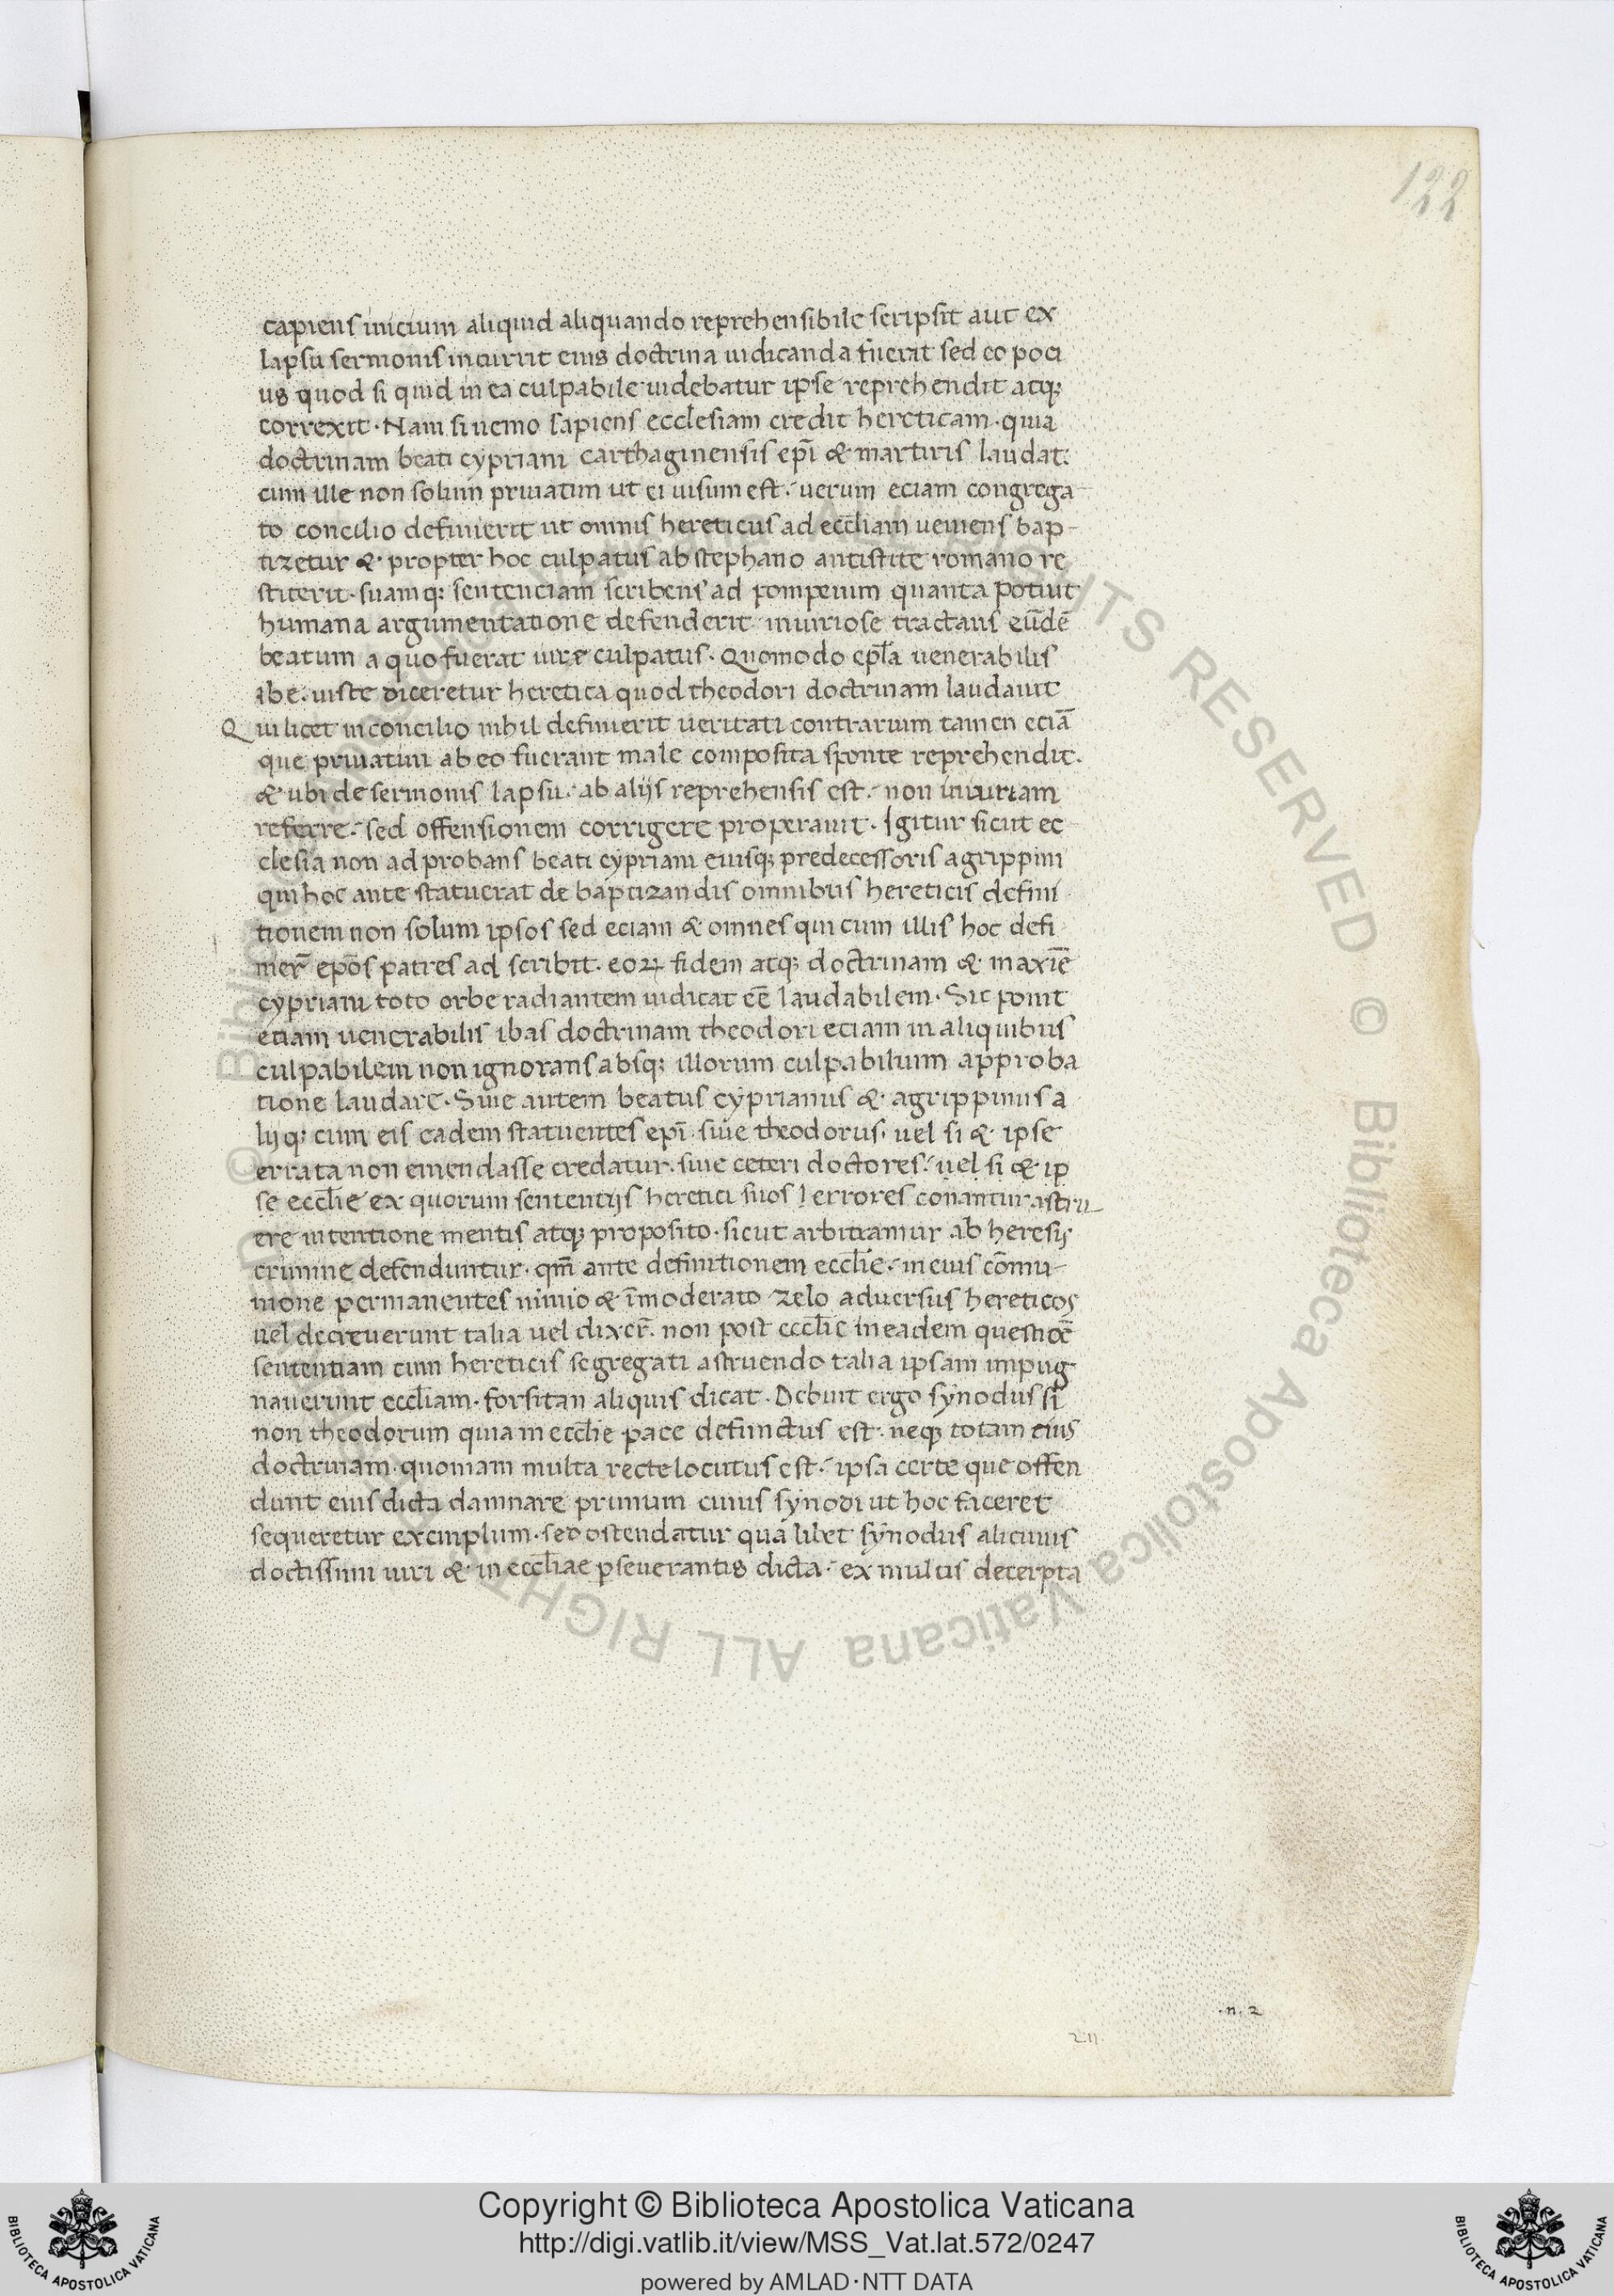 122
capiens inicium aliquid aliquando reprehensibile scripsit aut ex
lapsu sermonis incurrit eius doctrina iudicanda fuerit sed eo poci
us quod si quid in ea culpabile uidebatur ipse reprehendit atq;
correxit · Nam si nemo sapiens ecclesiam credit hereticam · quia
doctrinam beati cypriani carthaginensis ep̄i & martiris laudat:
cum ille non solum priuatim ut ei uisum est · uerum eciam congrega
to concilio definierit ut omnis hereticus ad eccl̄iam ueniens bap-
tizetur & propter hoc culpatus ab stephano antistite romano re
stiterit · suamq; sentenciam scribens ad pompeium quanta potuit
humana argumentatione defenderit iniuriose tractans eūdē
beatum a quo fuerat iure culpatus · Quomodo ep̄la uenerabilis
ibe · iuste diceretur heretica quod theodori doctrinam laudauit
Qui licet in concilio nihil definierit ueritati contrarium tamen eciā
que priuatim ab eo fuerant male composita sponte reprehendit ·
& ubi de sermonis lapsu · ab alijs reprehensis est · non iniuriam
referre · sed offensionem corrigere properauit · Igitur sicut ec
clesia non adprobans beati cypriani eiusq; predecessoris agrippini
qui hoc ante statuerat de baptizandis omnibus hereticis defini
tionem non solum ipsos sed eciam & omnes qui cum illis hoc defi
nier̄ ep̄os patres ad scribit · eoꝝ fidem atq; doctrinam & maxīe
cypriani toto orbe radiantem iudicat eē laudabilem · Sic ponit
etiam uenerabilis ibas doctrinam theodori eciam in aliquibus
culpabilem non ignorans absq; illorum culpabilium approba
tione laudare · Siue autem beatus cyprianus & agrippinus a
lijq; cum eis eadem statuentes ep̄i · siue theodorus · uel si & ipse
errata non emendasse credatur · siue ceteri doctores · uel si & ip
se eccl̄ie ex quorum sententijs heretici suos errores conantur astru
ere intentione mentis atq; proposito · sicut arbitramur ab heresis
crimine defenduntur · qm̄ ante definitionem eccl̄ie · in eius cōmu-
nione permanentes nimio & īmoderato zelo aduersus hereticos
uel decreuerunt talia uel dixer̄ · non post eccl̄ie in eadem questiōe
sententiam cum hereticis segregati astruendo talia ipsam impug
nauerunt eccl̄iam · forsitan aliquis dicat · Debuit ergo synodus si
non theodorum quia in eccl̄ie pace defunctus est · neq; totam eius
doctrinam · quoniam multa recte locutus est · ipsa certe que offen
dunt eius dicta damnare primum cuius synodi ut hoc faceret
sequeretur exemplum · sed ostendatur qua libet synodus alicuius
doctissimi uiri & in eccl̄iae pseuerantis dicta · ex multis decerpta
· n · 2
Copyright © Biblioteca Apostolica Vaticana
http://digi.vatlib.it/view/MSS_Vat.lat.572/0247
powered by AMLAD·NTT DATA
BIBLIOTECA APOSTOLICA VATICANA
BIBLIOTECA APOSTOLICA VATICANA
© Biblioteca Apostolica Vaticana ALL RIGHTS RESERVED © Biblioteca Apostolica Vaticana ALL RIGHTS RESERVED